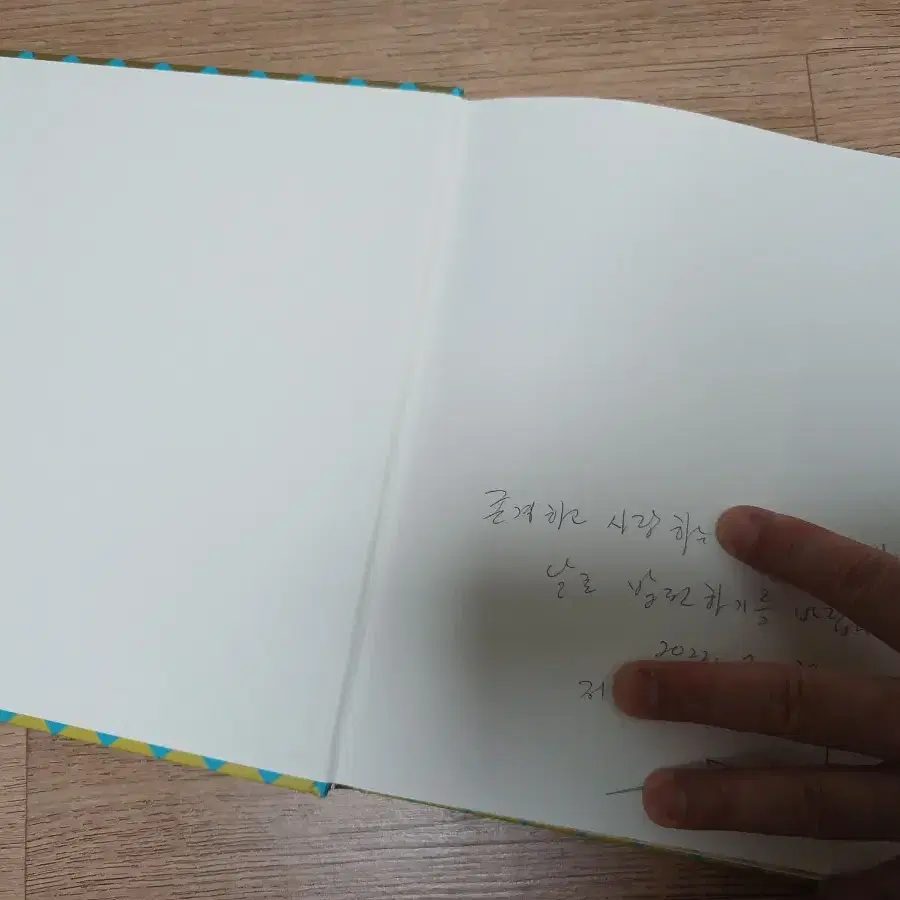 존경하고 사랑하는
날로 발전하기를 바랍니
2022.
저